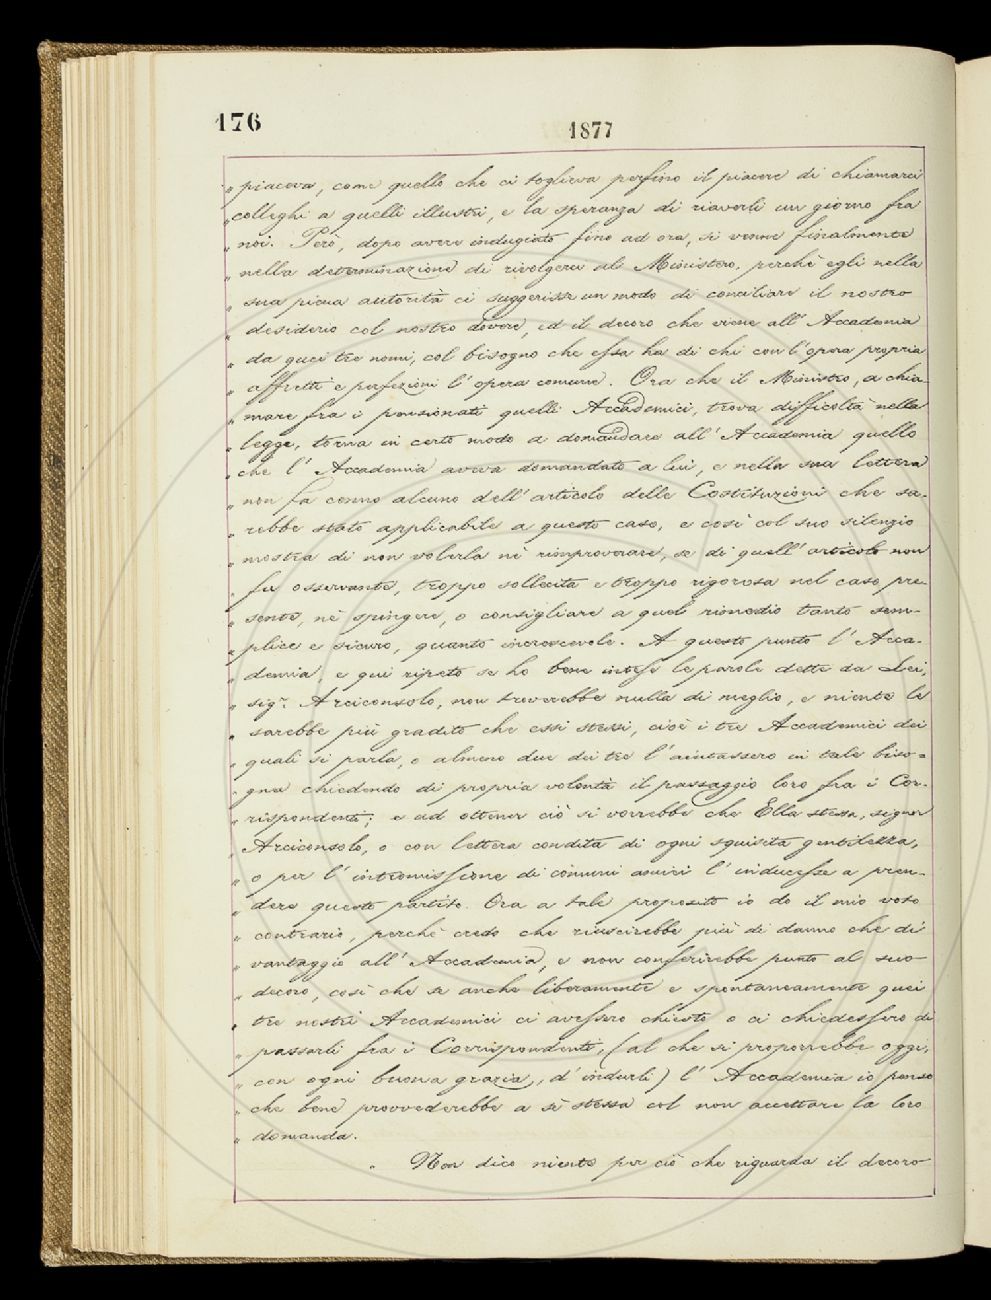 176
1877
„ piaceva, come quello che ci toglieva perfino il piacere di chiamarci
„ colleghi a quelli illustri, e la speranza di riaverli un giorno fra
„ noi. Però, dopo avere indugiato fino ad ora, si venne finalmente
„ nella determinazione di rivolgersi al Ministero, perchè egli nella
„ sua piena autorità ci suggerisse un modo di conciliare il nostro
„ desiderio col nostro dovere, ed il decoro che viene all' Accademia
„ da quei tre nomi, col bisogno che essa ha di chi con l'opera propria
„ affretti e perfezioni l' opera comune. Ora che il Ministro, a chia-
„ mare fra i pensionati quelli Accademici, trova difficoltà nella
„ legge, torna in certo modo a domandare all' Accademia quello
„ che l' Accademia aveva domandato a lui, e nella sua lettera
„ non fa cenno alcuno dell' articolo delle Costituzioni che sa-
„ rebbe stato applicabile a questo caso, e così col suo silenzio
„ mostra di non volerla nè rimproverare, se di quell' articolo non
„ fu osservante, troppo sollecita e troppo rigorosa nel caso pre-
„ sente, nè spingere, o consigliare a quel rimedio tanto sem-
„ plice e sicuro, quanto increscevole. A questo punto l' Acca-
„ demia, e qui ripeto se ho bene inteso le parole dette da Lei,
„ sigr. Arciconsolo, non troverebbe nulla di meglio, e niente le
„ sarebbe più gradito che essi stessi, cioè i tre Accademici dei
„ quali si parla, o almeno due dei tre l' aiutassero in tale biso-
„ gna chiedendo di propria volontà il passaggio loro fra i Cor-
„ rispondenti; e ad ottener ciò si vorrebbe che Ella stessa, signor
„ Arciconsolo, o con lettera condita di ogni squisita gentilezza,
„ o per l' intromissione dei comuni amici l' inducesse a pren-
„ dere questo partito. Ora a tale proposito io do il mio voto
„ contrario, perchè credo che riuscirebbe più di danno che di
„ vantaggio all' Accademia, e non conferirebbe punto al suo
„ decoro, così che se anche liberamente e spontaneamente quei
„ tre nostri Accademici ci avessero chiesto o ci chiedessero di
„ passarli fra i Corrispondenti, (al che si proporrebbe oggi,
„ con ogni buona grazia, d' indurli) l' Accademia io penso
„ che bene provvederebbe a sè stessa col non accettare la loro
„ domanda.
„ Non dico niente per ciò che riguarda il decoro